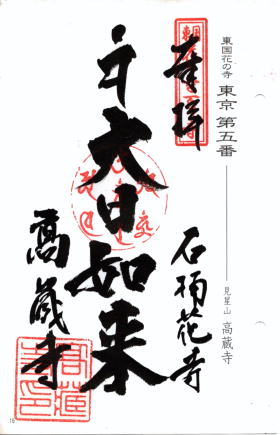 東国花の寺 東京 第五番
見星山 高蔵寺
奉拝
石楠花寺
大日如来
高蔵寺
15